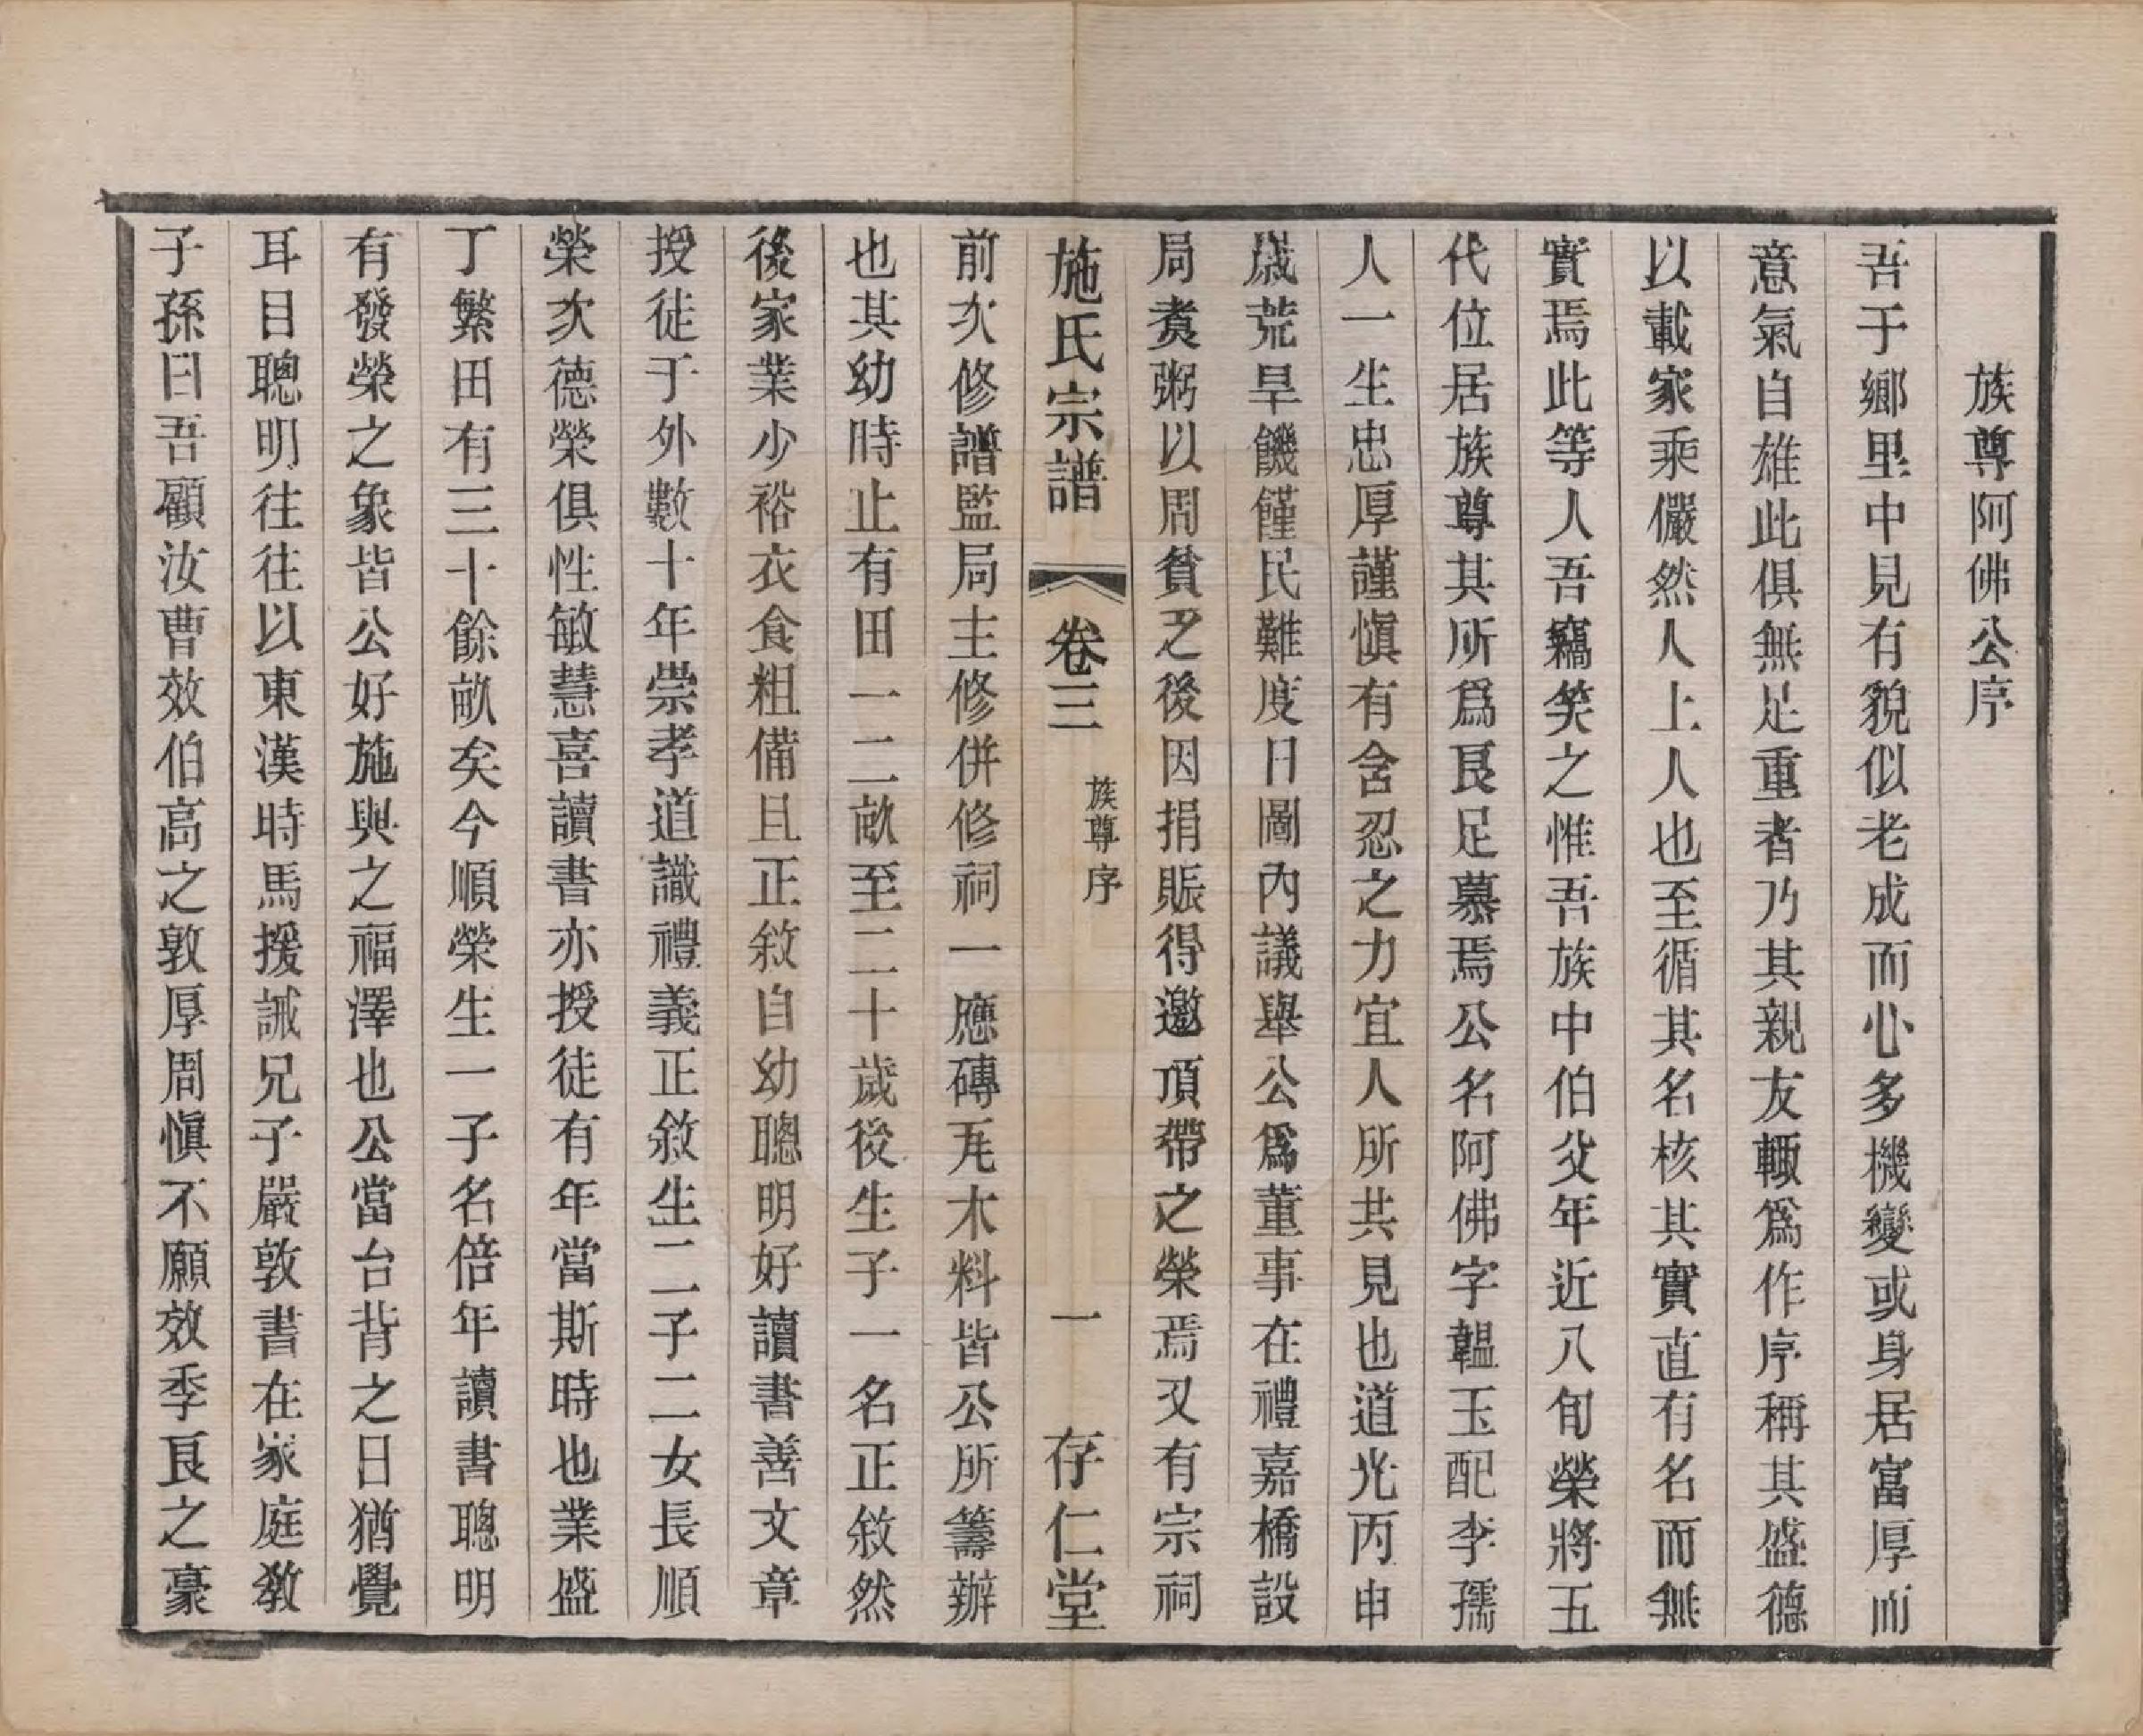 族尊阿佛公序
吾于鄉里中見有貌似老成而心多機變或身居富厚而
意氣自雄此俱無足重者乃其親友輙爲作序稱其盛德
以載家乘儼然人上人也至循其名核其實直有名而無
實焉此等人吾竊笑之惟吾族中伯父年近八旬榮將五
代位居族尊其所爲良足慕焉公名阿佛字韞玉配李孺
人一生忠厚謹愼有含忍之力宜人所共見也道光丙申
歲荒旱饑饉民難度日圖內議舉公爲董事在禮嘉橋設
局煑粥以周貧乏後因捐賑得邀頂帶之榮焉又有宗祠
施氏宗譜
卷三
族尊序
一
存仁堂
前次修譜監局主修併修祠一應磚瓦木料皆公所籌辦
也其幼時止有田一二畝至二十歲後生子一名正敘然
後家業少裕衣食粗備且正敘自幼聰明好讀書善文章
授徒于外數十年崇孝道識禮義正敘生二子二女長順
榮次德榮俱性敏慧喜讀書亦授徒有年當斯時也業盛
丁繁田有三十餘畝矣今順榮生一子名倍年讀書聰明
有發榮之象皆公好施與之福澤也公當台背之日猶覺
耳目聰明往往以東漢時馬援誡兄子嚴敦書在家庭敎
子孫曰吾顧汝曹效伯高之敦厚周愼不願效季良之豪